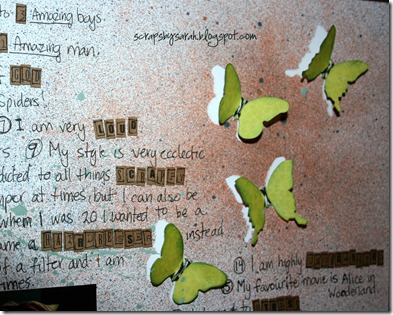 to 5 Amazing boys
scrapsbysarah.blogspot.com
1 Amazing man.
of
Spiders!
7 I am very LOUD.
rs. 9 My style is very eclectic
dicted to all things
yper at times, but I can also be
when I was 20 I wanted to be a
ame a HAIRDRESSER instead
of a filter and I am
times.
14 I am highly
My favourite movie is Alice in
Wonderland.